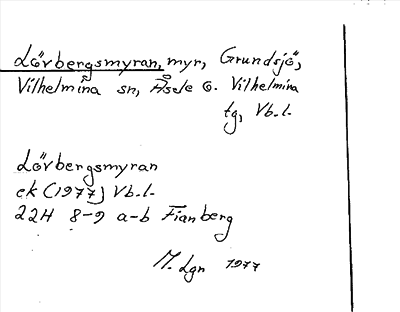 Lövbergsmyran, myr, Grundsjö,
Vilhelmina sn, Åsele o. Vilhelmina
tg, Vb.l.
Lövbergsmyran
ek (1977) Vb.l.
22H 8-9 a-b Fianberg
M. Lgn 1977